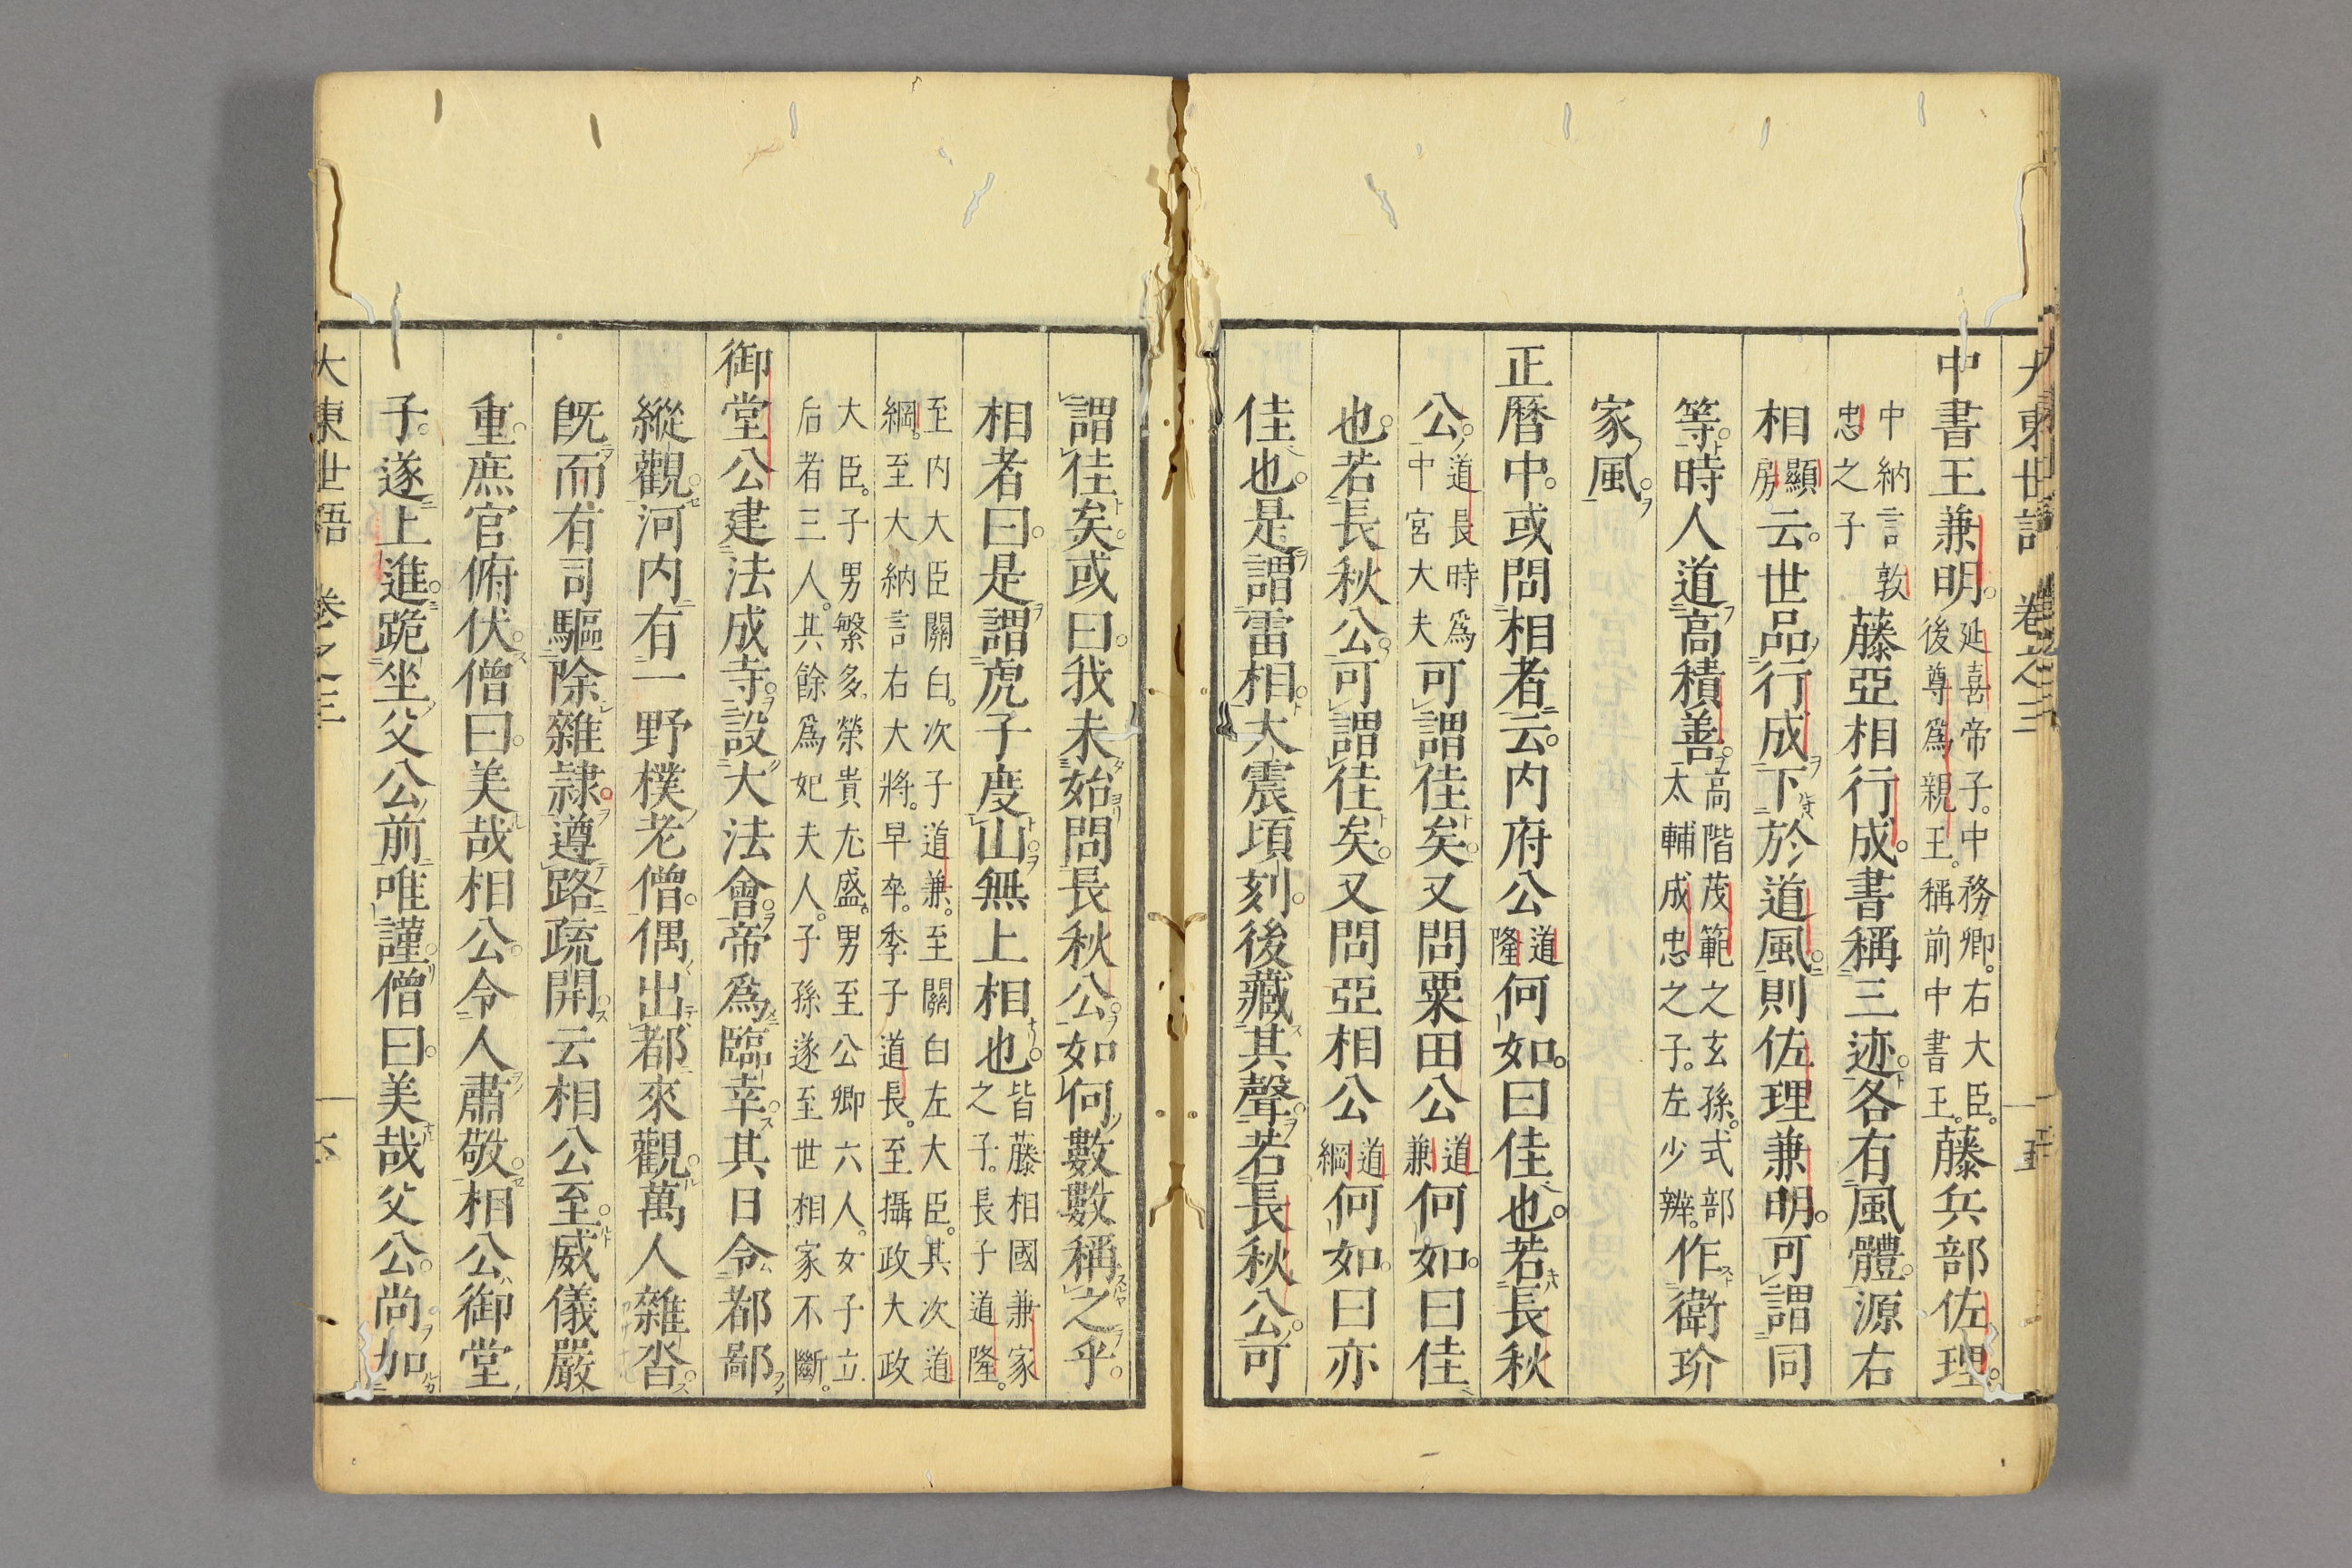 大東世語 卷之三 五
中書王兼明。延喜帝子。中務卿。右大臣。後尊爲親王。稱前中書王。藤兵部佐理。
中納言敦忠之子藤亞相行成。書稱三迹。各有風體。源右
相顯房云。世品行成下於道風。則佐理兼明。可謂同
等。時人道高積善。高階茂範之玄孫。式部太輔成忠之子。左少辨。作衛玠
家風。
正曆中。或問相者云。内府公道隆何如。曰佳也。若長秋
公。道長時爲中宮大夫可謂佳矣。又問粟田公道兼何如。曰佳
也。若長秋公。可謂佳矣。又問亞相公道綱何如。曰亦
佳也。是謂雷相。大震項刻。後藏其聲。若長秋公。可
謂佳矣。或曰。我未始問長秋公。如何數數稱之乎。
相者曰。是謂虎子度山。無上相也。皆藤相國兼家之子。長子道隆。
至内大臣關白。次子道兼。至關白左大臣。其次道綱。至大納言右大將。早卒。季子道長。至攝政大政
大臣。子男繁多。榮貴尤盛。男至公卿六人。女子立后者三人。其餘爲妃夫人。子孫遂至世相家不斷。
御堂公建法成寺。設大法會。帝爲臨幸。其日令都鄙
縱觀。河内有一野樸老僧。偶出都來觀。萬人雜沓。
既而有司驅除雜隷。遵路疏開。云相公至。威儀嚴
重。庶官俯伏。僧曰。美哉相公。令人肅敬。相公御堂
子。遂上進。跪坐父公前。唯謹。僧曰。美哉父公。尚加
大東世語 卷之三 六